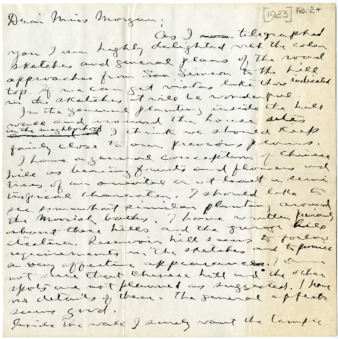 [1923] Feb. 2+
Dear Miss Morgan:
As I telegraphed
you I am highly delighted with the color
sketches and general plans of the road
approaches from San Simeon to the hill
top. If we can get vistas like those indicated
in the sketches it will be wonderful
In the general planting inside the hill
wall and around the house
in the neighborhood I think we should keep
fairly close to our previous plans.
I have a general conception of Chinese
hill as bearing fruits and flowers and
trees of an oriental or at least a semi
tropical character. I should like to
see somewhat similar planting around
the Moorish baths. I have written previously
about these hills and the hill
declares. Reservoir hill seems to follow
requirements in the sketches to promise
a very effective appearance. I
not but that Chinese hill and the other
spots are not planned as suggested. I have
no details of them. The general effects
seems good.
Inside the wall I surely want the